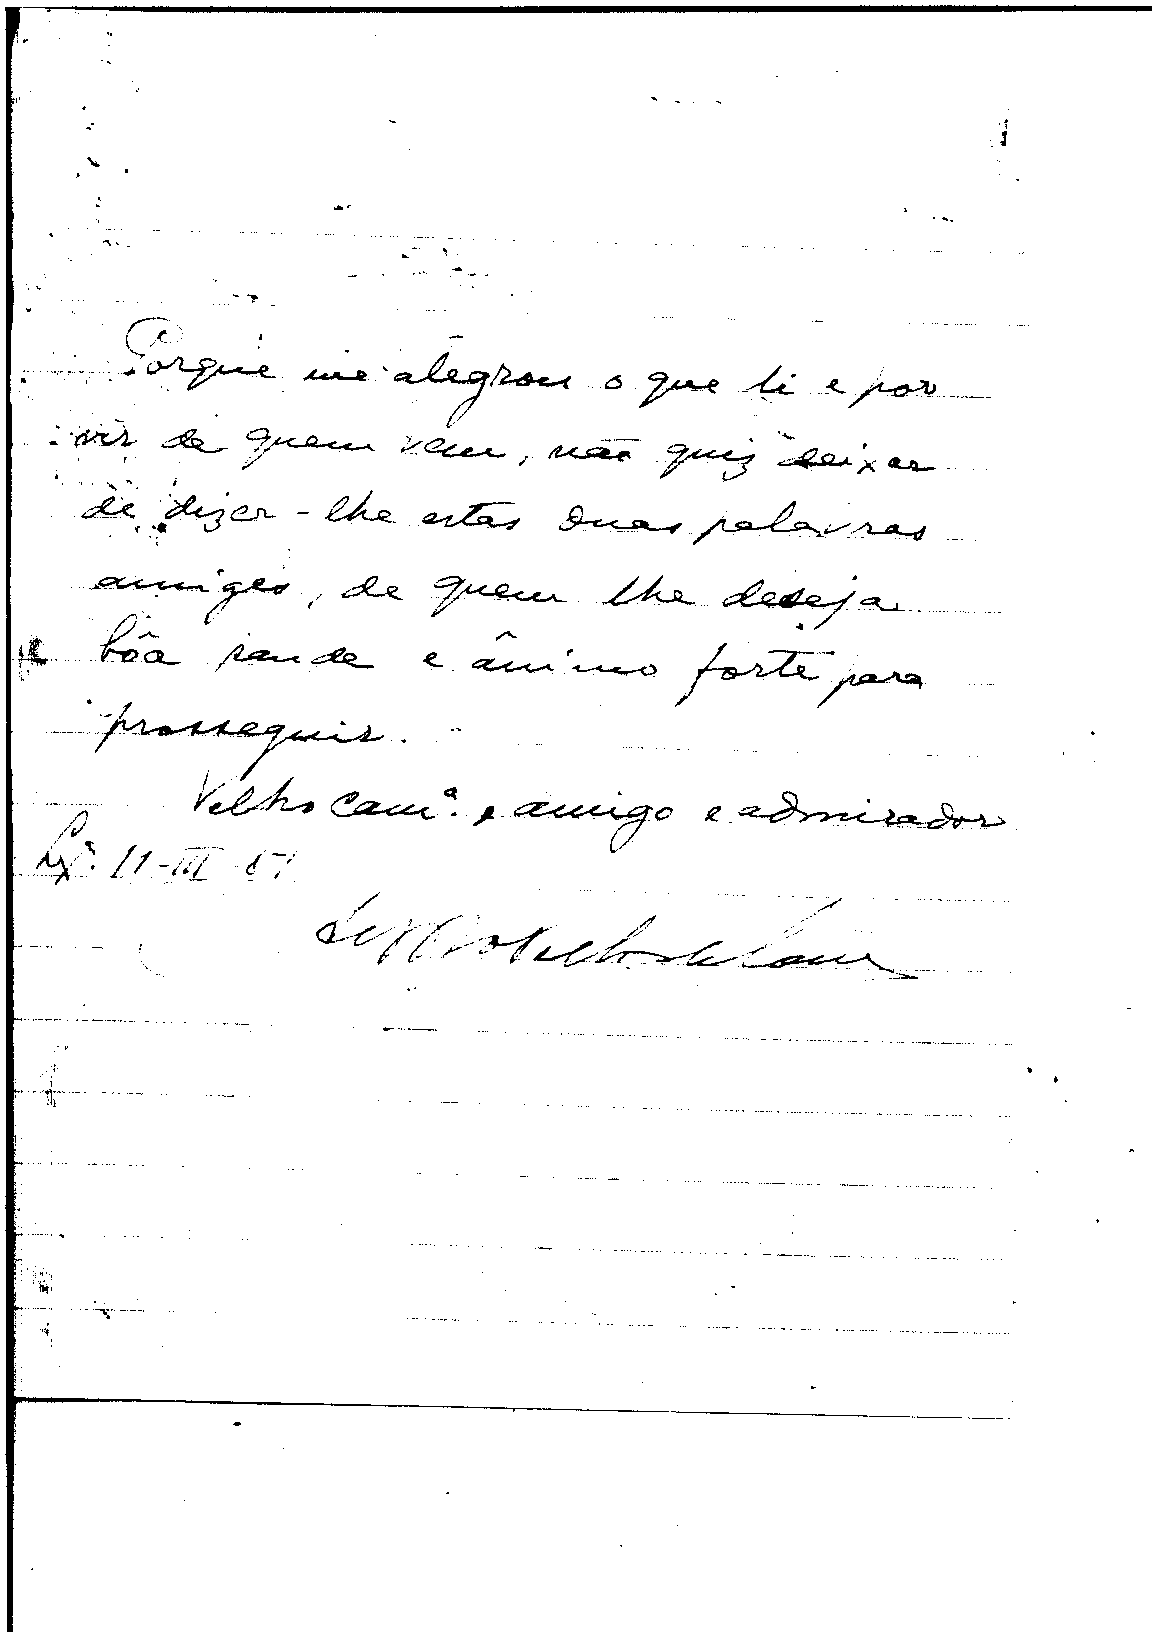 Porque me alegrou o que li e por
vir de quem vem, não quiz deixar
de dizer-lhe estas duas palavras
amigas, de quem lhe deseja
bôa saude e ânimo forte para
prosseguir.
Velho cam.ª, amigo e admirador
Lxª. 11-III-